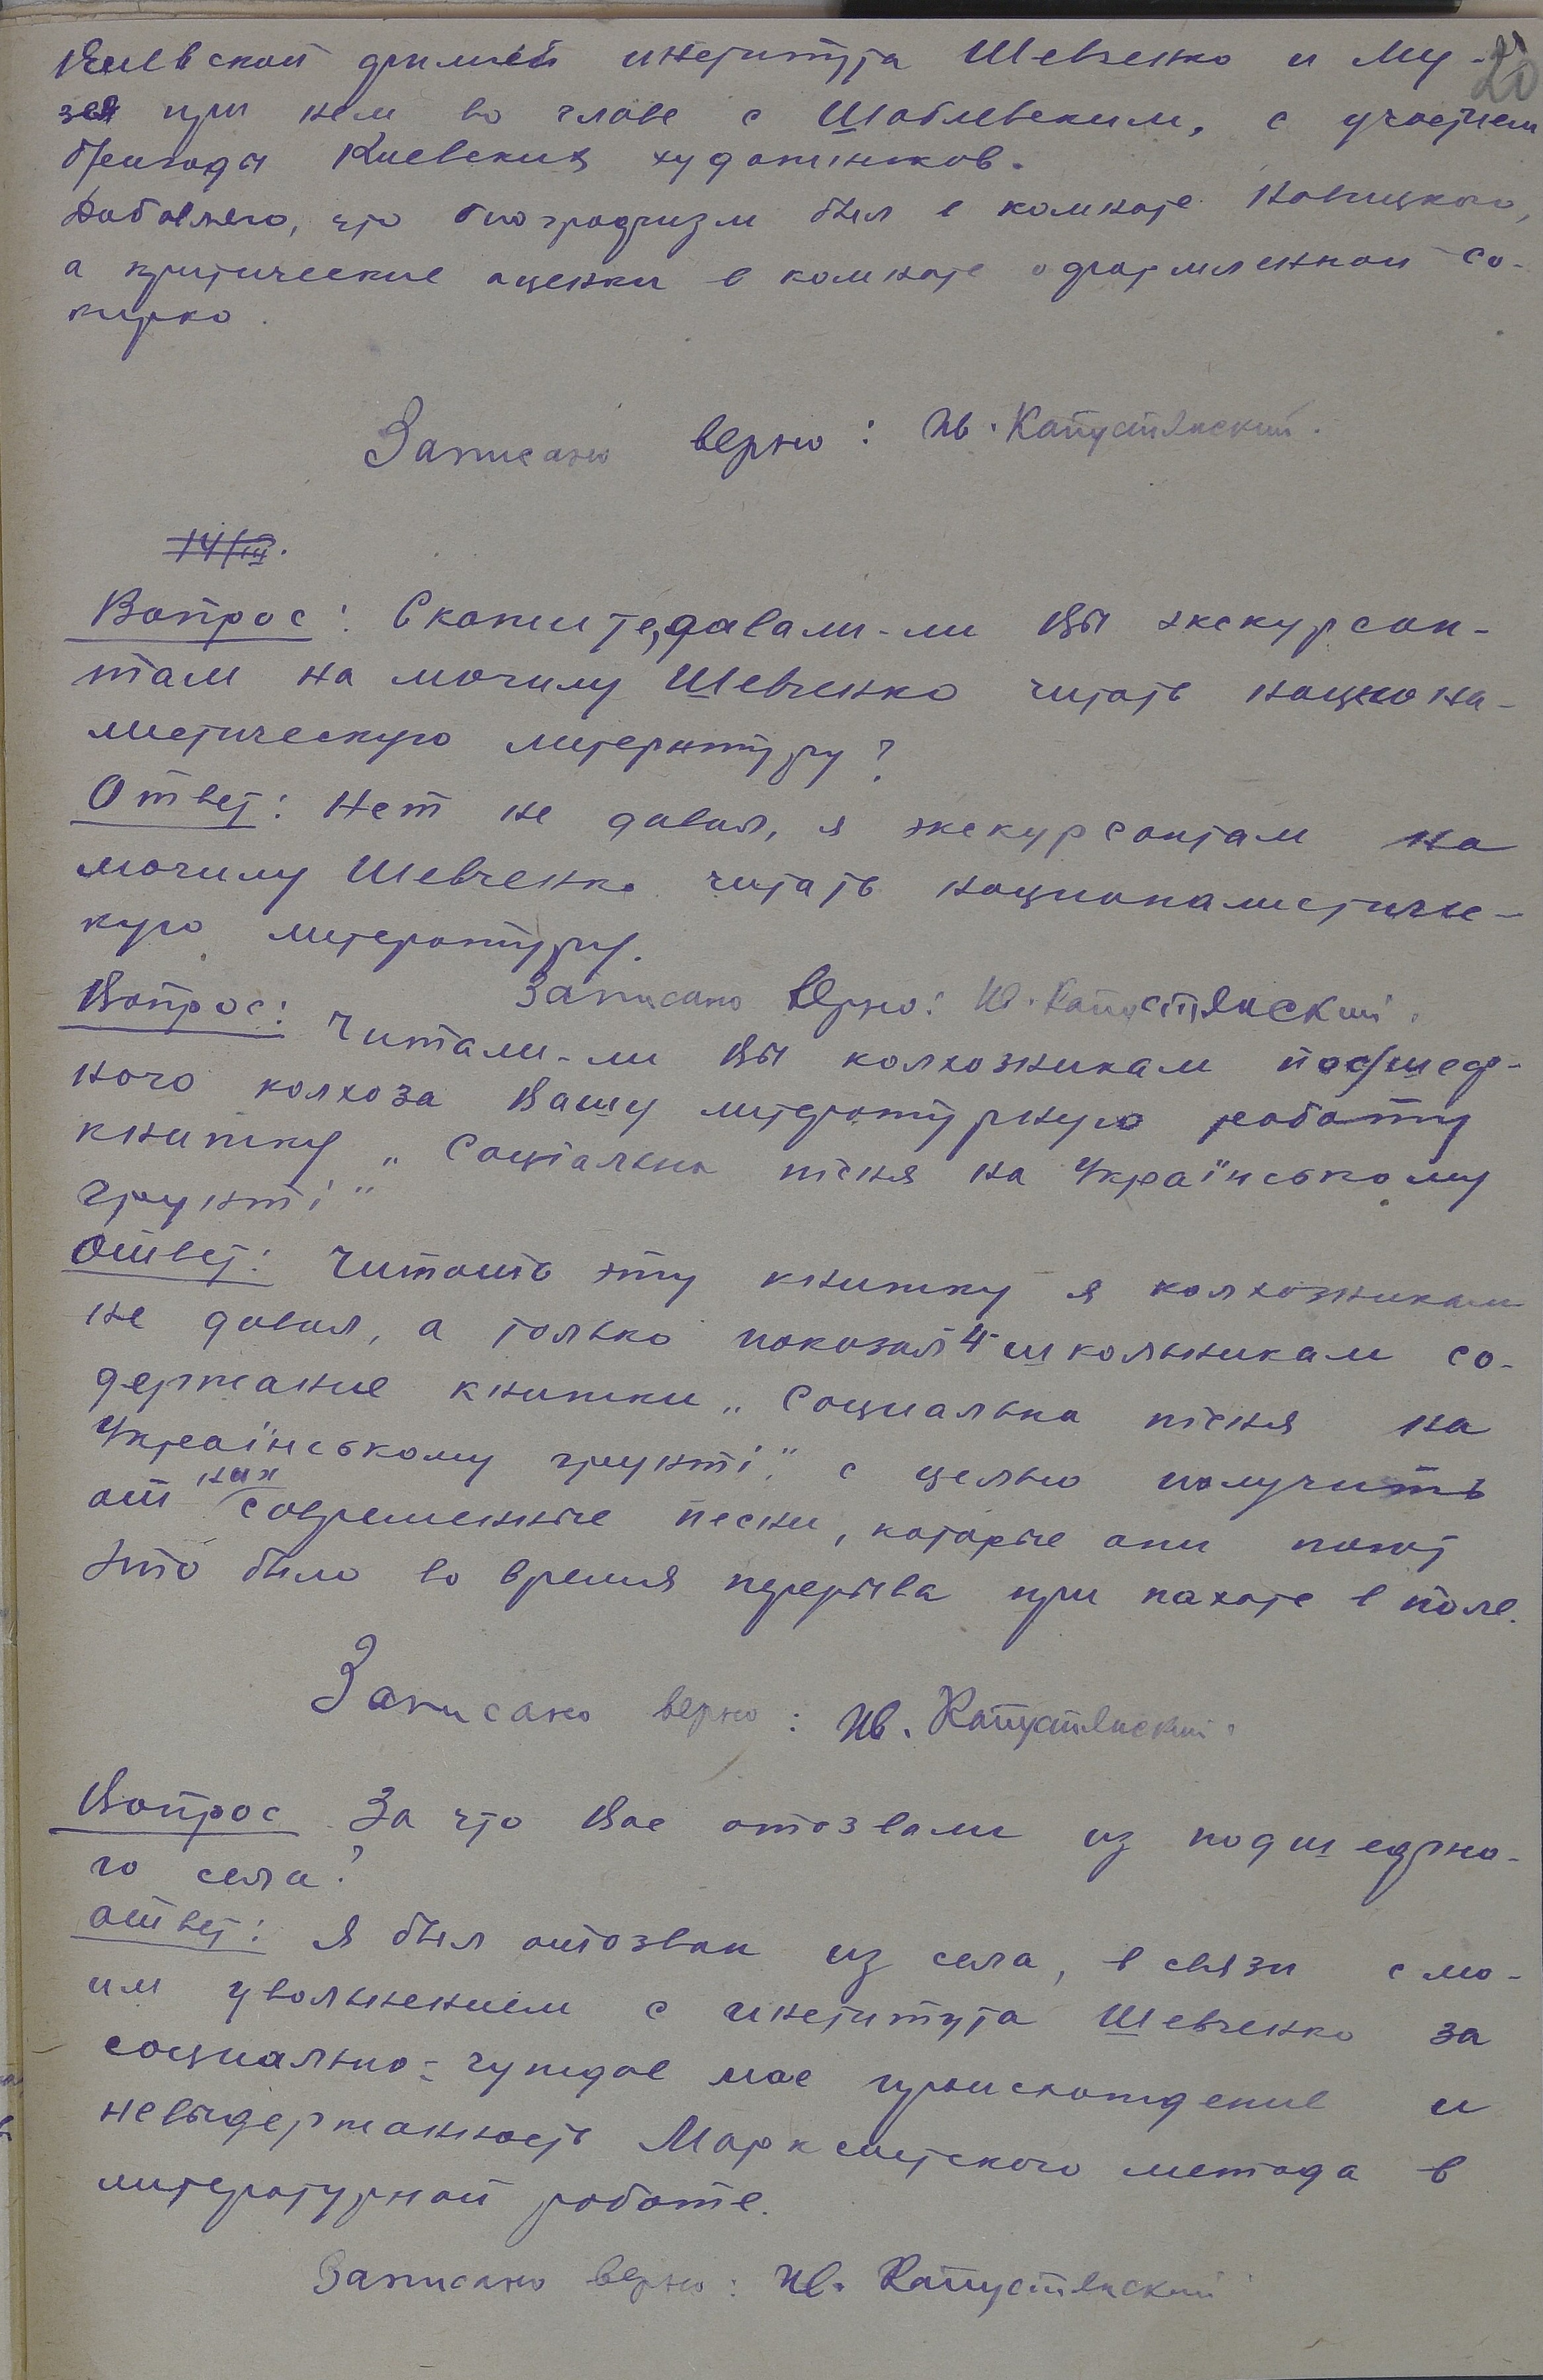 20
Киевской филией института Шевченко и Му-
зея при нем во главе с Шаблевским, с участием
бригады Киевских художников.
Добавляю, что биографизм был в комнате Новицкого,
а критические оценки в комнате оформленной Со-
пирко.
Записано верно: Ив. Капустянский.
14/III.
Вопрос: Скажите, давали-ли Вы экскурсан-
там на могилу Шевченко читать национа-
листическую литературу?
Ответ: Нет не давал, я экскурсантам на
могилу Шевченко читать националистиче-
кую литературу.
Записано верно: Ив. Капустянский.
Вопрос: Читали-ли Вы колхозникам подшеф-
ного колхоза Вашу литературную работу
книжку „Соціальна пісня на Українському
грунті"
Ответ: Читать эту книжку я колхозникам
не давал, а только показал 4 школьникам со-
держание книжки „Социальна пісня на
Українському грунті" с целью получить
от них современные песни, которые они поют
Это было во время перерыва при пахоте в поле.
Записано верно: Ив. Капустянский.
Вопрос За что Вас отозвали из подшефно-
го села?
Ответ: Я был отозван из села, в связи с мо-
им увольнением с института Шевченко за
социально-чуждое мое происхождение и
невыдержанность Марксистского метода в
литературной работе.
Записано верно: Ив. Капустянский